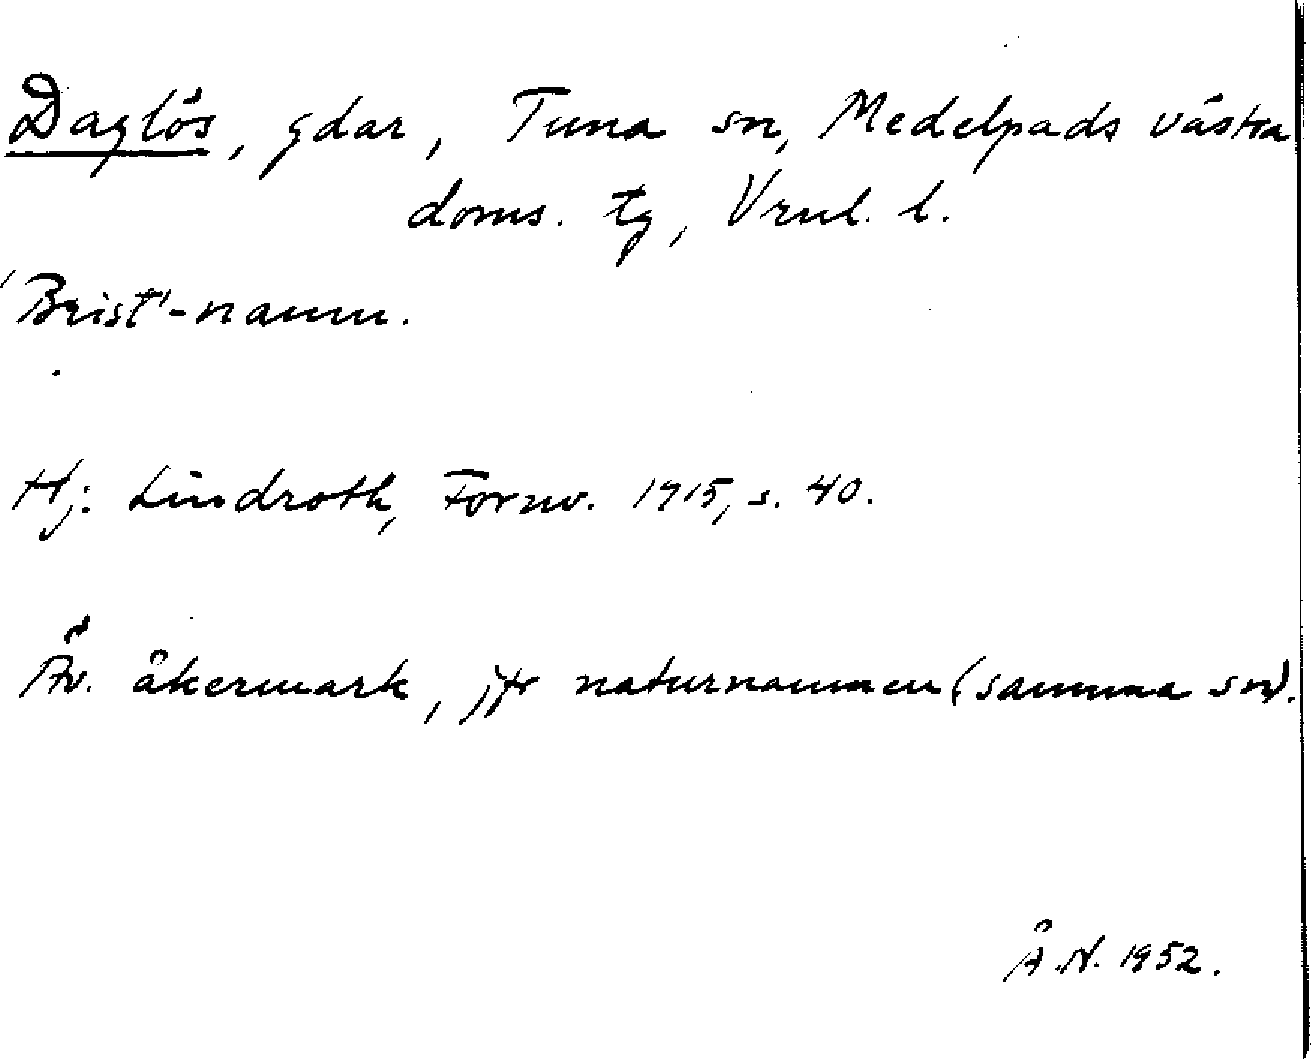 Daglös, gdar, Tuna sn, Medelpads västra
doms. tg, Vrnl. l.
'Brist'-namn.
Hj: Lindroth, Fornv. 1915, s. 40.
Äv. åkermark, jfr naturnamnen (samma sn).
Å.N. 1952.